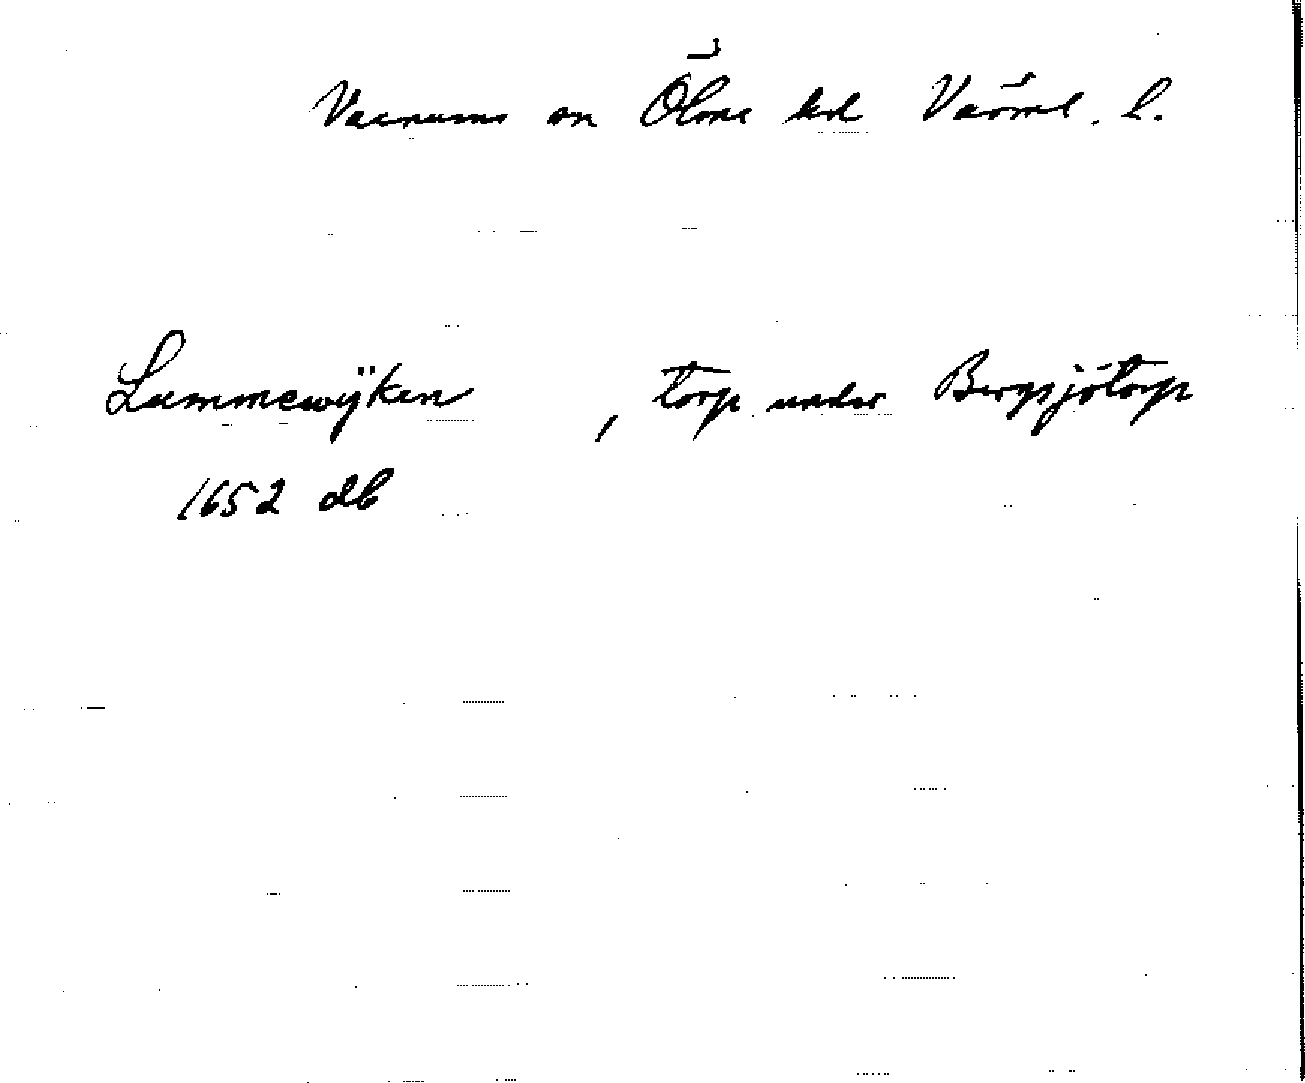 Varnums sn Ölme hd Värml. l.
Lammewÿken , torp under Bergsjötorp
1652 db